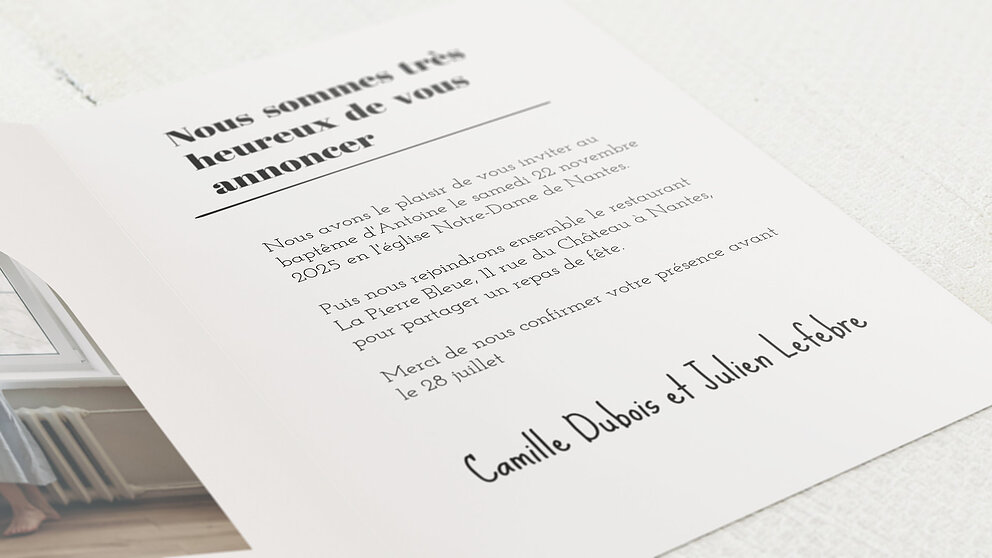 Nous sommes très
heureux de vous
annoncer
Nous avons le plaisir de vous inviter au
baptême d'Antoine le samedi 22 novembre
2025 en l'église Notre-Dame de Nantes.
Puis nous rejoindrons ensemble le restaurant
La Pierre Bleue, 11 rue du Château à Nantes,
pour partager un repas de fête.
Merci de nous confirmer votre présence avant
le 28 juillet
Camille Dubois et Julien Lefebre